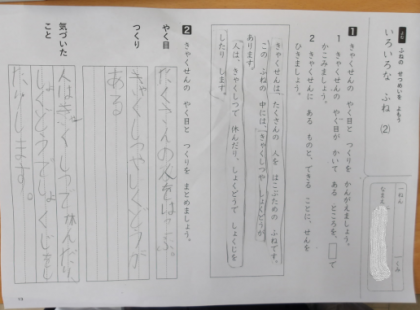 ふねの せつめいを よもう
いろいろな ふね (2)
一ねん
くみ
なまえ
1 きゃくせんの やく目と つくりを かんがえましょう。
1 きゃくせんの やく目が かいて ある ところを、□で
かこみましょう。
2 きゃくせんに ある ものと、できる ことに、せんを
ひきましょう。
きゃくせんは、たくさんの 人を はこぶための ふねです。
この ふねの 中には、きゃくしつや しょくどうが
あります。
人は、きゃくしつで 休んだり、しょくどうで しょくじを
したり します。
2 きゃくせんの やく目と つくりを まとめましょう。
やく目
たくさんの人をはこぶ。
つくり
きゃくしつやしょくどうが
ある
気づいた
こと
人はきゃくしつで休んだり、
しょくどうでしょくじをし
たりします。